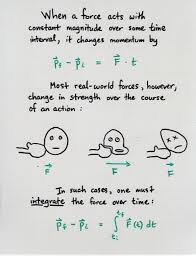 When a force acts with
constant magnitude over some time
interval, it changes momentum by
p⃗f - p⃗i = F⃗ · t
Most real-world forces, however,
change in strength over the course
of an action :
F⃗ F⃗ F⃗
In such cases, one must
integrate the force over time:
p⃗f - p⃗i = ∫ti^tf F⃗(t) dt